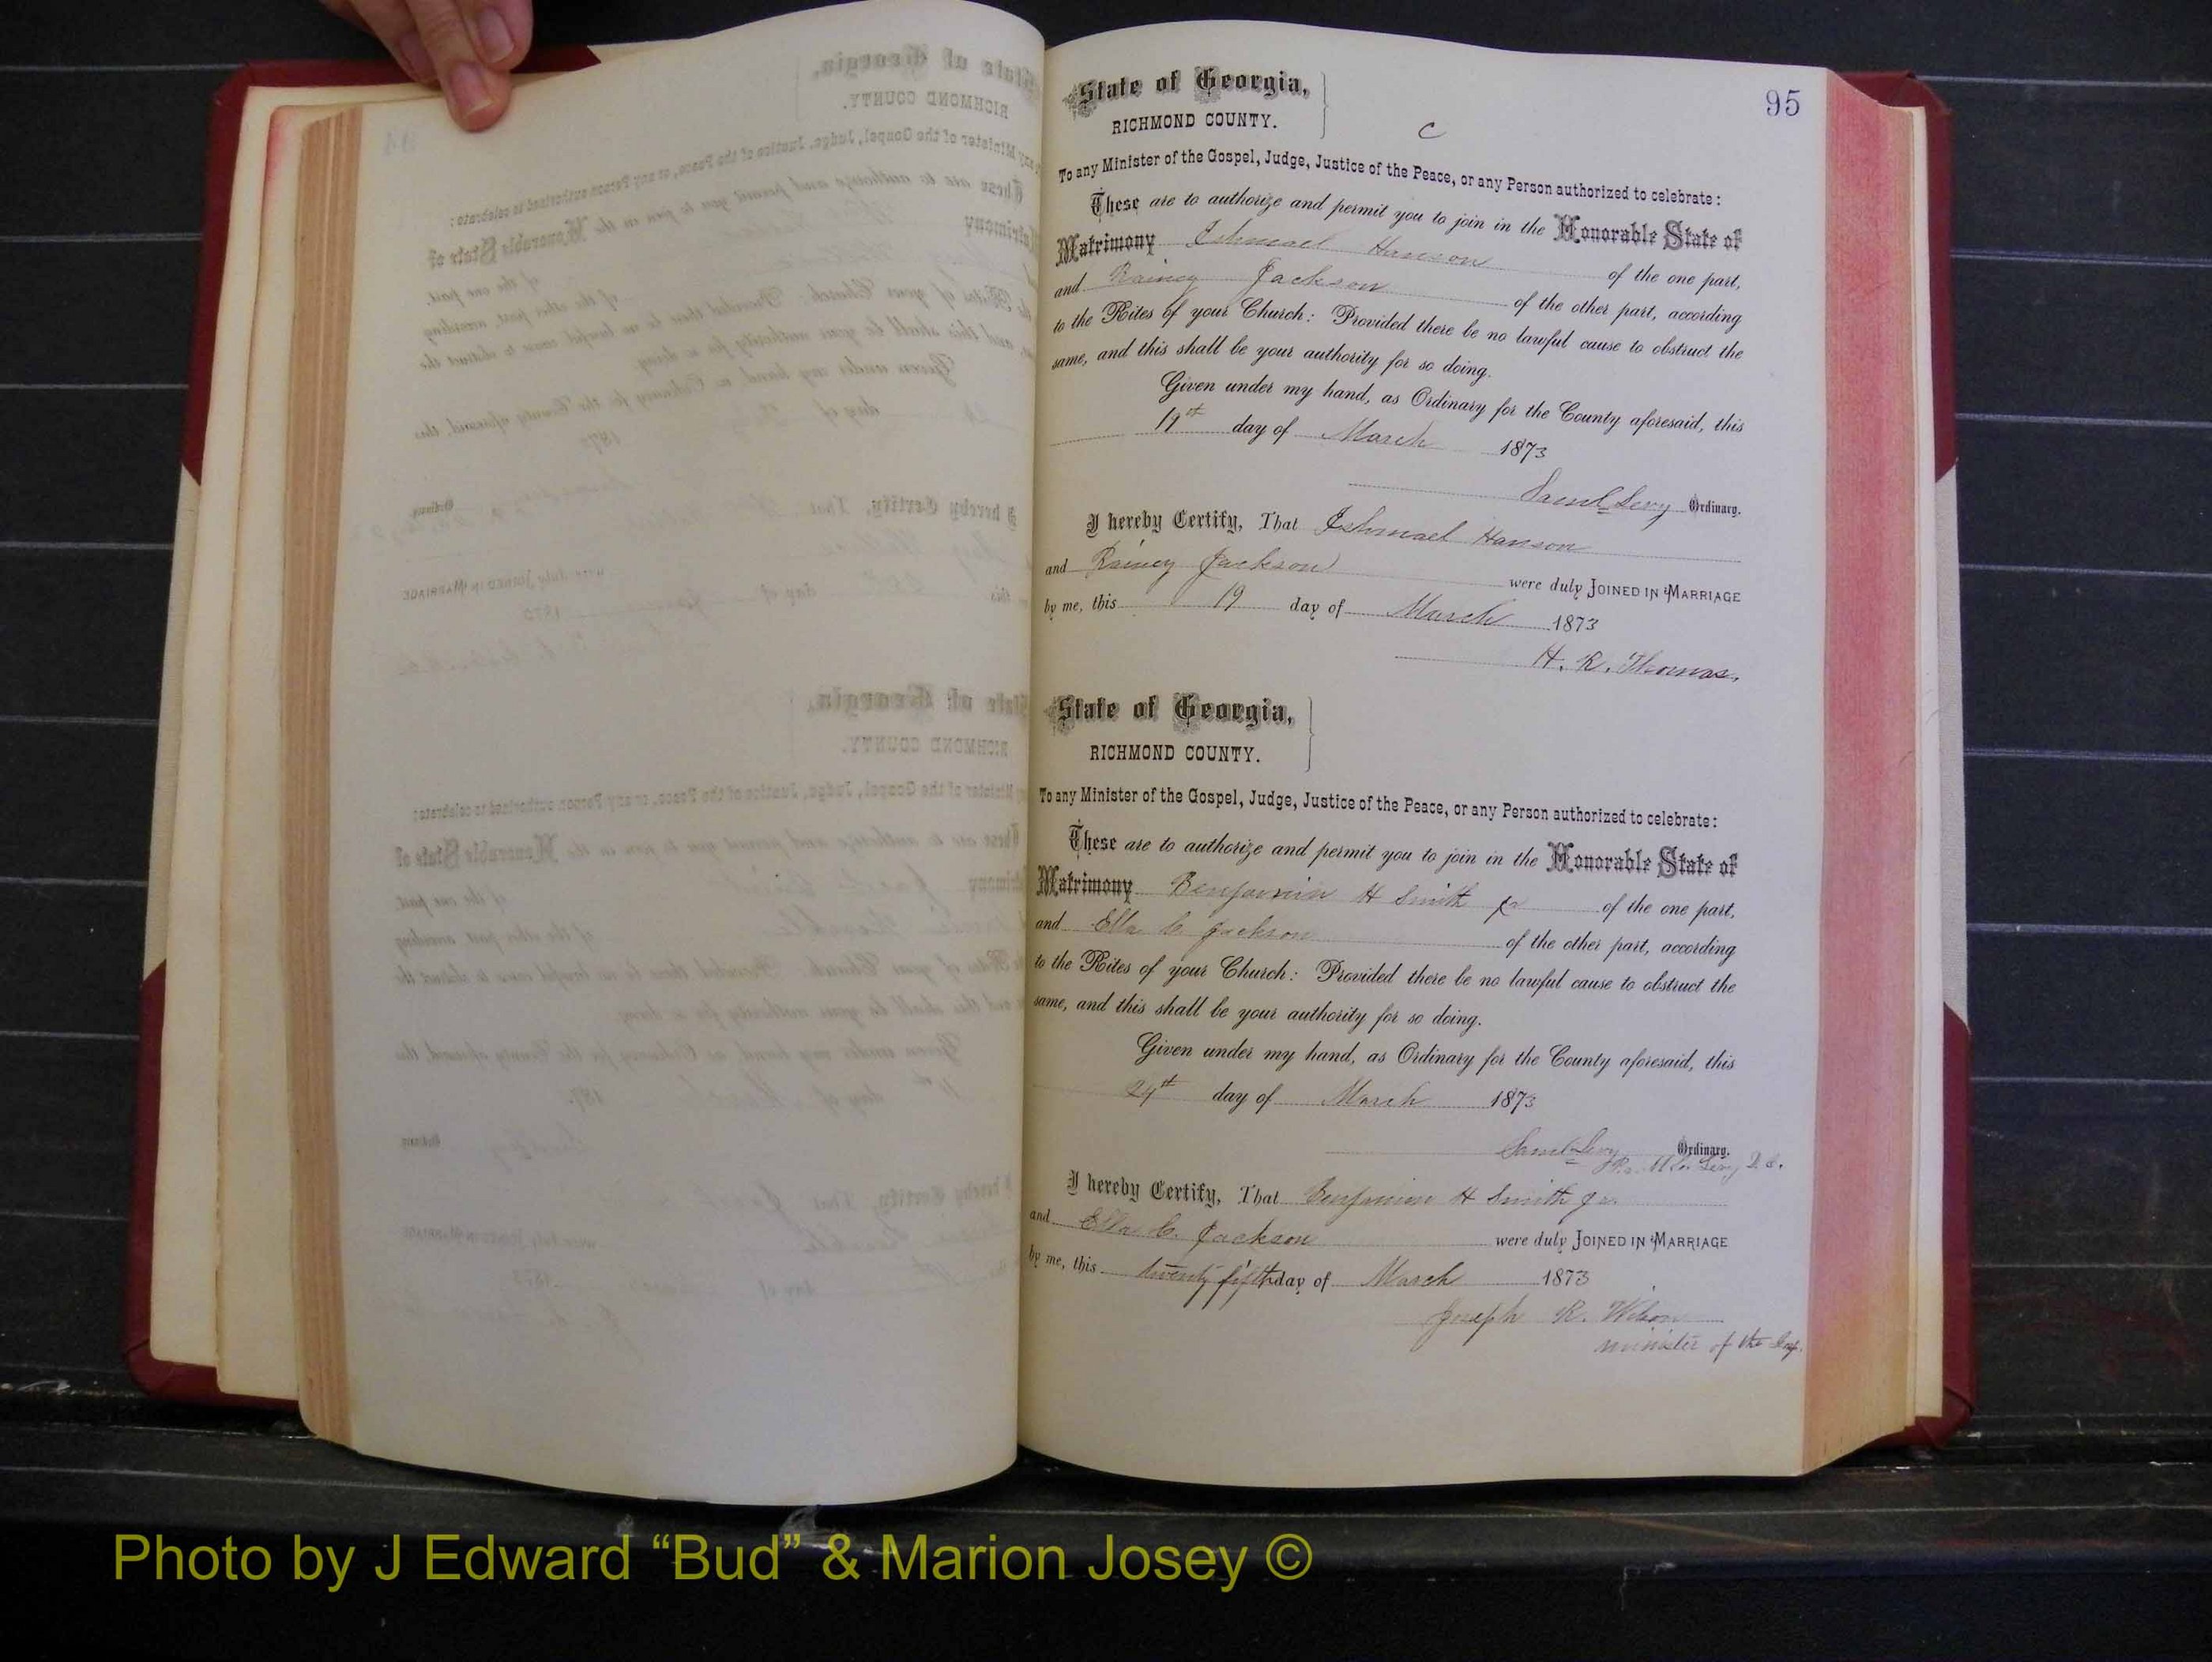 95
State of Georgia,
RICHMOND COUNTY.
C
To any Minister of the Gospel, Judge, Justice of the Peace, or any Person authorized to celebrate:
These are to authorize and permit you to join in the Honorable State of
Matrimony Ishmael Hanson of the one part,
and Rainey Jackson of the other part, according
to the Rites of your Church: Provided there be no lawful cause to obstruct the
same, and this shall be your authority for so doing.
Given under my hand, as Ordinary for the County aforesaid, this
19th day of March 1873
Saml Levy Ordinary.
I hereby Certify, That Ishmael Hanson
and Rainey Jackson were duly JOINED IN MARRIAGE
by me, this 19 day of March 1873
H. R. Thomas.
State of Georgia,
RICHMOND COUNTY.
To any Minister of the Gospel, Judge, Justice of the Peace, or any Person authorized to celebrate:
These are to authorize and permit you to join in the Honorable State of
Matrimony Benjamin H Smith Jr of the one part,
and Ella C. Jackson of the other part, according
to the Rites of your Church: Provided there be no lawful cause to obstruct the
same, and this shall be your authority for so doing.
Given under my hand, as Ordinary for the County aforesaid, this
24th day of March 1873
Saml Levy Ordinary.
Levy
I hereby Certify, That Benjamin H Smith Jr.
and Ella C. Jackson were duly JOINED IN MARRIAGE
by me, this twenty fifth day of March 1873
Joseph R. Wilson
minister of the Gosp.
Photo by J Edward “Bud” & Marion Josey ©